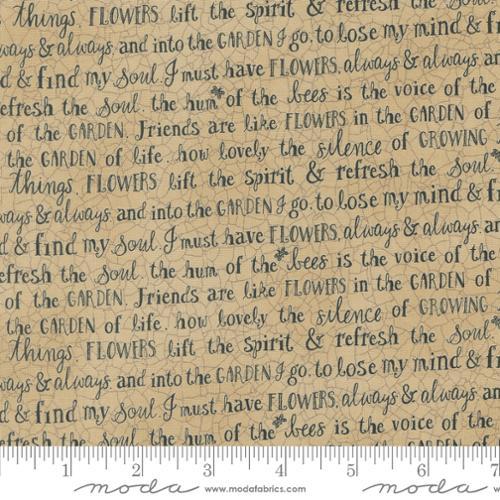 things. FLOWERS lift the spirit & refresh the soul
ways & always and into the GARDEN I go. to lose my mind &
d & find my soul. I must have FLOWERS, always & always, an
refresh the soul. the hum of the bees is the voice of the
of the GARDEN. Friends are like FLOWERS in the GARDEN of
the GARDEN of life. how lovely the silence of GROWING
things. FLOWERS lift the spirit & refresh the soul
ways & always and into the GARDEN I go. to lose my mind &
d & find my soul. I must have FLOWERS, always & always, an
refresh the soul. the hum of the bees is the voice of the
of the GARDEN. Friends are like FLOWERS in the GARDEN of
the GARDEN of life. how lovely the silence of GROWING
things. FLOWERS lift the spirit & refresh the soul
ways & always and into the GARDEN I go. to lose my mind & f
d & find my soul. I must have FLOWERS, always & always, an
refresh the soul. the hum of the bees is the voice of the
1 2 3 4 5 6 7
moda www.modafabrics.com moda